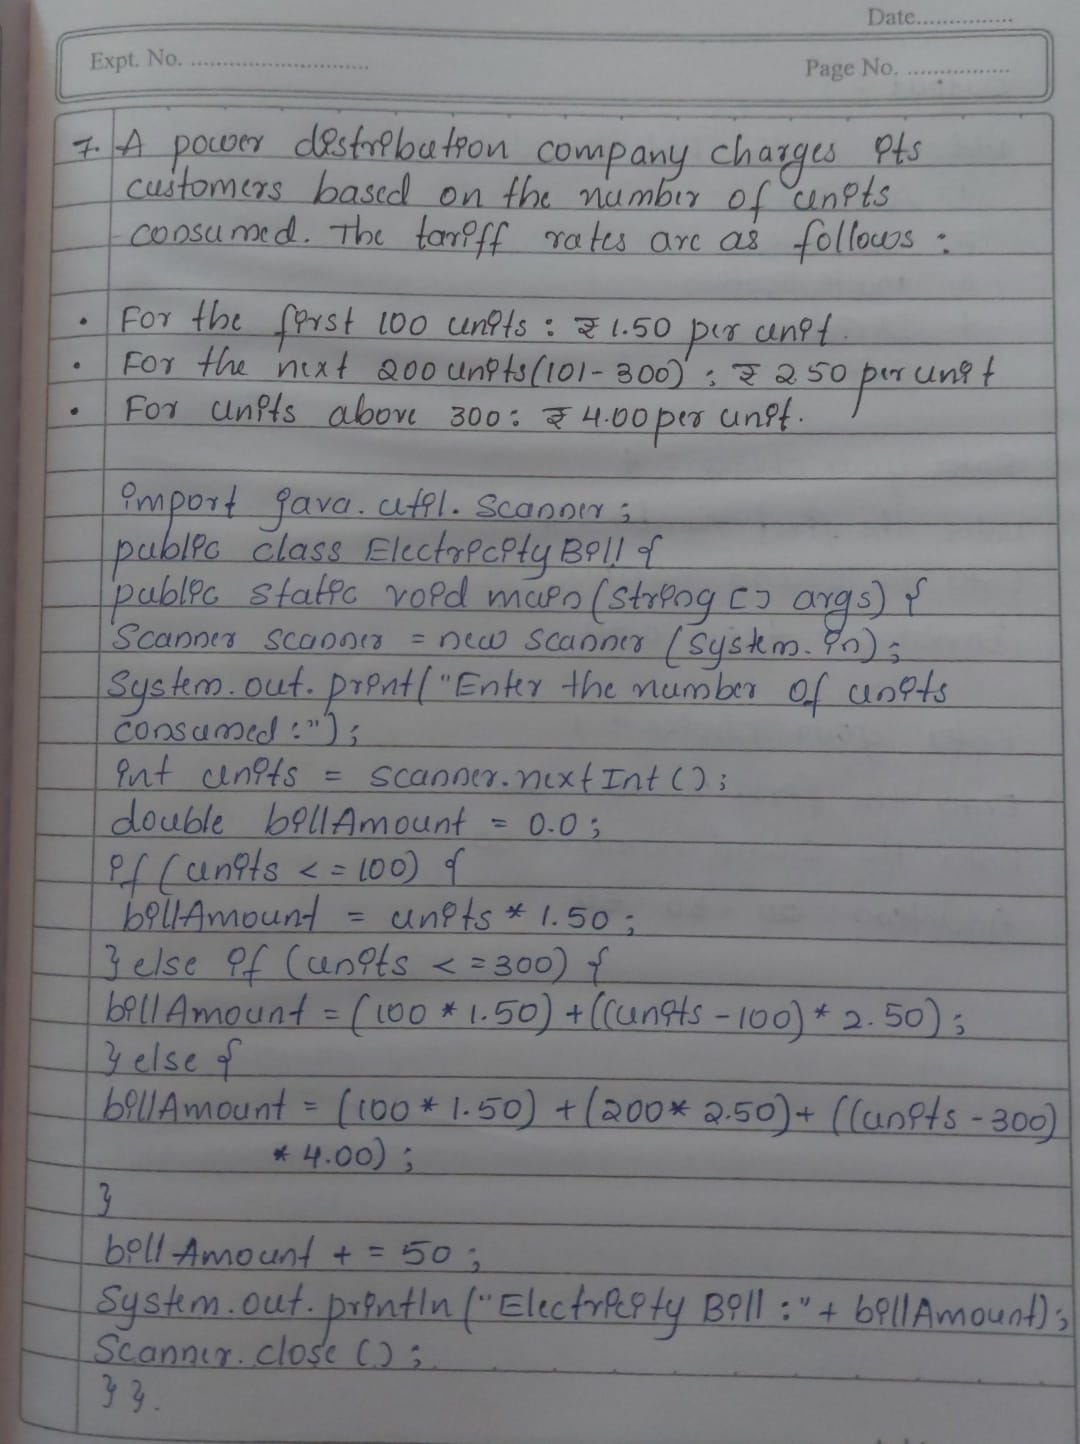 Date................
Expt. No. ............................
Page No. ................
7. A power distribution company charges its
customers based on the number of units
consumed. The tariff rates are as follows :
• For the first 100 units : ₹ 1.50 per unit.
• For the next 200 units (101 - 300) : ₹ 2 50 per unit
• For units above 300 : ₹ 4.00 per unit.
import java. util. Scanner ;
public class Electricity Bill {
public static void main (String [] args) {
Scanner scanner = new scanner (System. in) ;
System. out. print ("Enter the number of units
consumed :") ;
int units = scanner. next Int () ;
double billAmount = 0.0 ;
if (units < = 100) {
billAmount = units * 1.50 ;
} else if (units < = 300) {
billAmount = (100 * 1.50) + ((units - 100) * 2. 50) ;
} else {
billAmount = (100 * 1.50) + (200 * 2.50) + ((units - 300)
* 4.00) ;
}
bill Amount + = 50 ;
System. out. println ("Electricity Bill :" + billAmount) ;
Scanner. close () ;
} }.